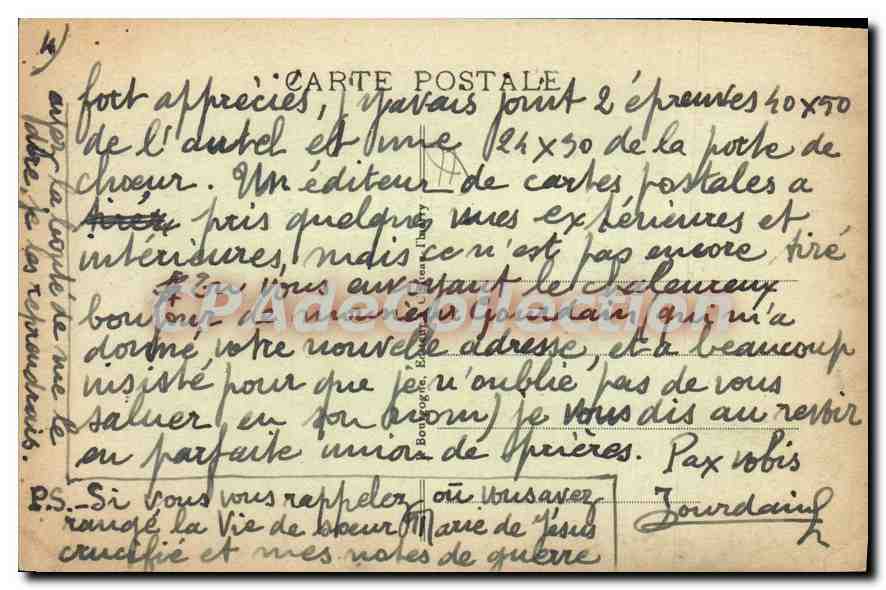 4)
CARTE POSTALE
fort appréciés, j'y avais joint 2 épreuves 40x50
de l'autel et une 24x30 de la porte de
chœur. Un éditeur de cartes postales a
tirés pris quelques vues extérieures et
intérieures, mais ce n'est pas encore tiré
En vous envoyant le chaleureux
bonjour de monsieur Jourdain qui m'a
donné votre nouvelle adresse, et a beaucoup
insisté pour que je n'oublie pas de vous
saluer en son nom, je vous dis au revoir
en parfaite union de prières. Pax vobis
Jourdain
P.S. - Si vous vous rappelez où vous avez
rangé la Vie de sœur Marie de Jésus
crucifié et mes notes de guerre
ayez la bonté de me le
dire, je les reprendrais.
Bourgogne,
CPADeCollection